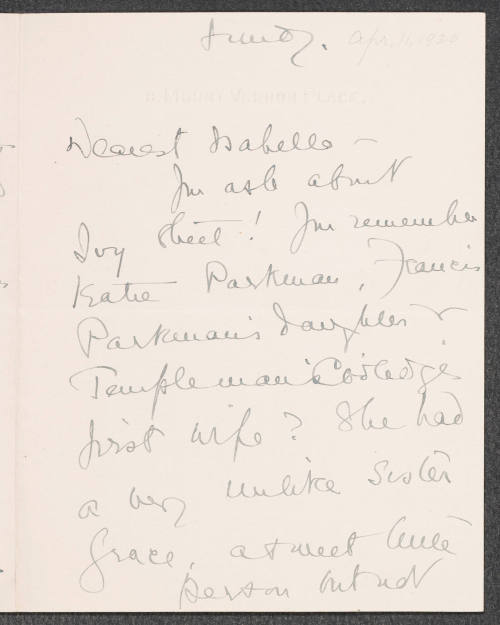 Sunday. Apr. 11, 1920
8. MOUNT VERNON PLACE.
Dearest Isabelle —
You ask about
Ivy Street! You remember
Katie Parkman, Francis
Parkman's daughter &
Templeman Coolidge's
first wife? She had
a very unlike sister
Grace, a sweet little
person but not